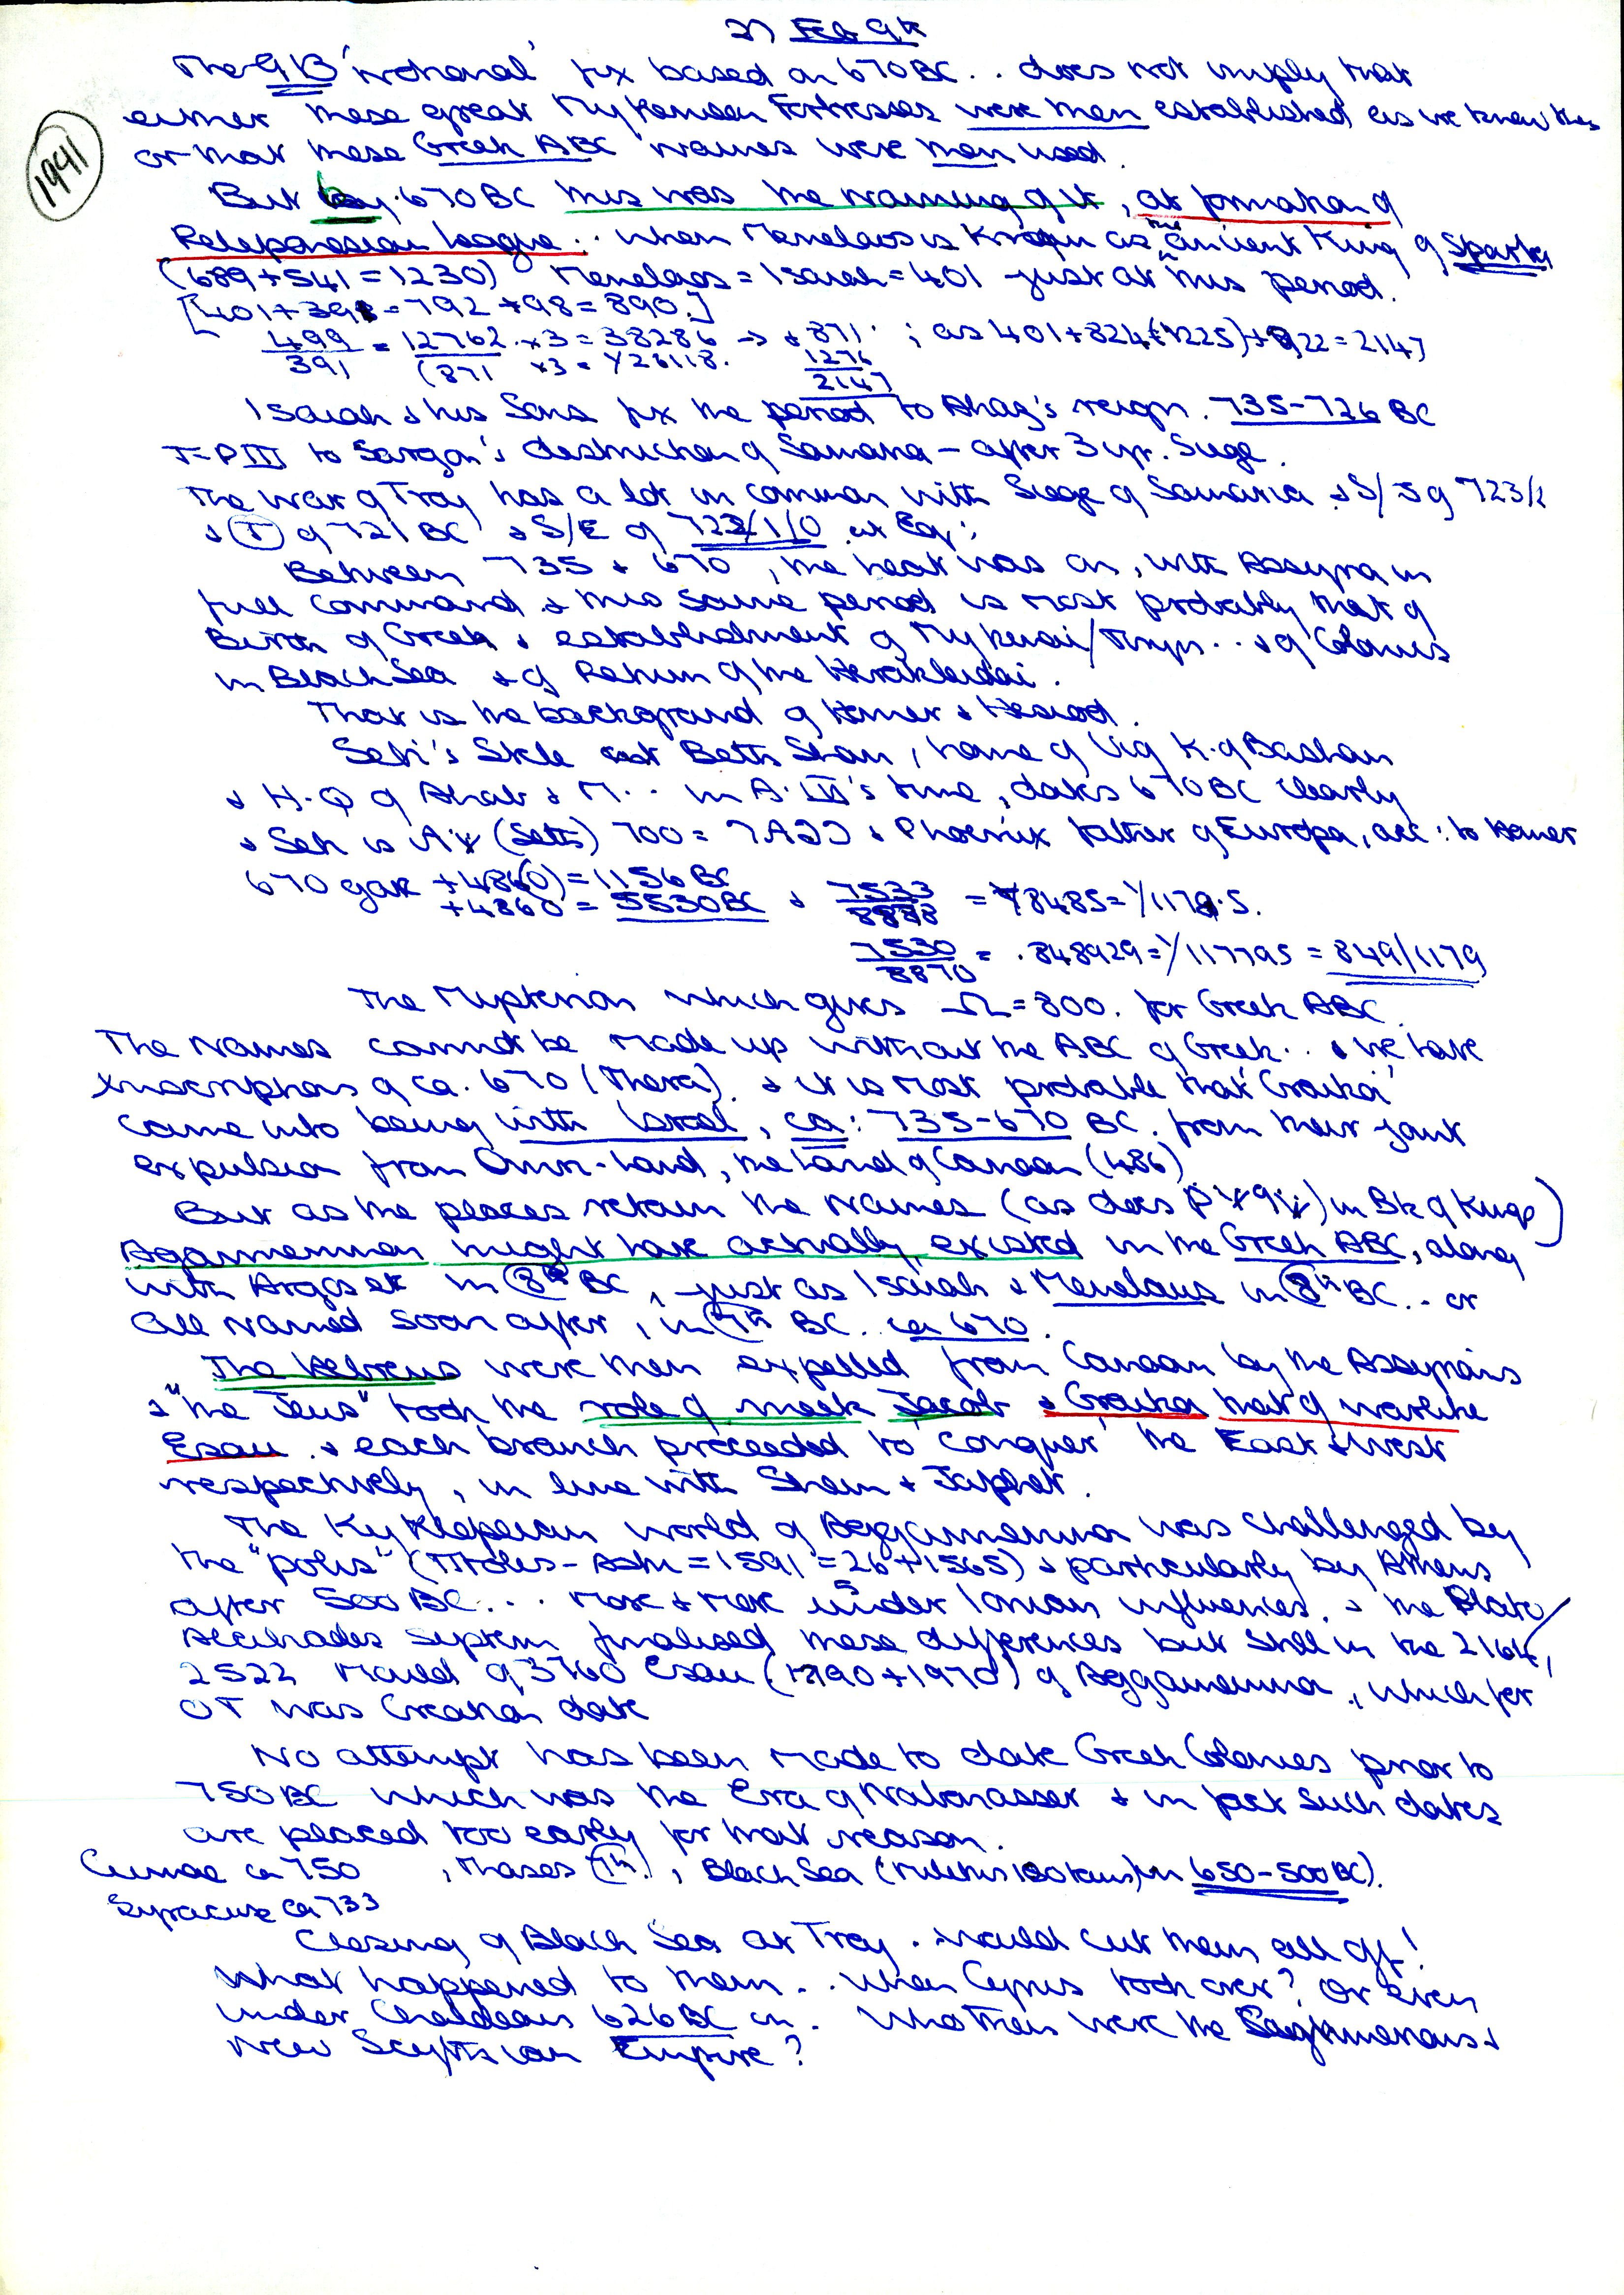 27 Feb
1941
The 9B 'notional' fix based on 670BC .. does not imply that
either these great Mykenean Fortresses were then established as we know
or that these Greek ABC names were then used.
But by 670BC this was the naming of it, at formation of
Peloponesian league .. when Menelaos is known as the ancient King of Sparta
(689+541=1230) Menelaos = Isaiah = 401 just at this period.
[401+391=792+98=890.]
499/391 = 12762 ×3=38286 → + 871 ; as 401+824(1225)+922=2147
(871 ×3 = 1/26118. 1276
2147
Isaiah & his Sons fix the period to Ahaz's reign. 735-726 BC
T=P III to Sargon's destruction of Samaria - after 3 yr. Siege.
The war of Troy has a lot in common with Siege of Samaria & S/J of 723/2
& (T) of 721 BC & S/E of 722/1/0 at Eq:
Between 735 & 670, the heat was on, with Assyria in
full command & this same period is most probably that of
Birth of Greek & establishment of Mykenai/Tiryn... & of Colonies
in Black Sea & of Return of the Herakleidai.
That is the background of Homer & Hesiod.
Seti's Stele at Beth Shan, home of Og K. of Bashan
& H.Q of Ahab & M.. in A.III's time, dates 670BC clearly
& Seti is (Seth) 700 = & Phoenix father of Europa, acc: to Homer
670 gave +486(0)=1156 BC
+4860 = 5530BC & 7533/8878 = .8485=1/1178.5.
7530/8870 = .848929=1/117795 = 849/1179
The Mykenai which gives Ω=800. for Greek ABC.
The Names cannot be made up without the ABC of Greek .. & we have
inscriptions of ca. 670 (Thera) & it is most probable that 'Graikoi'
came into being with Israel, ca: 735-670 BC. from their joint
expulsion from Omri-land, the Land of Canaan (486)
But as the places retain the Names (as does in Bk of Kings)
Agamemnon might have actually existed in the Greek ABC, along
with Argos et in 8th BC, just as Isaiah & Menelaus in 8th BC .. or
all named soon after, in 7th BC. ca 670.
The Hebrews were then expelled from Canaan by the Assyrians
& "the Jews" took the role of meek Jacob & Graikoi that of warlike
Esau & each branch proceeded to 'conquer' the East & West
respectively, in line with Shem & Japhet.
The Kyklopeian world of Aggamemnon was challenged by
the "polis" (=1591 = 26+1565) & particularly by Athens
after 500BC ... more & more under Ionian influences, & the Plato/
Alcibiades system finalised these differences but still in the 2164/
2522 mould of 3760 Esau (1790+1970) of Aggamemnon, which for
OT was Creation date
No attempt has been made to date Greek Colonies prior to
750BC which was the Era of Nabonasser & in fact such dates
are placed too early for that reason.
Cumae ca 750, Thasos (7th), Black Sea (Miletus 100 towns) in 650-500BC).
Syracuse ca 733
Closing of Black Sea at Troy . would cut them all off!
What happened to them .. when Cyrus took over? Or even
under Chaldeans 626BC on. Who then were the &
new Scythian Empire?